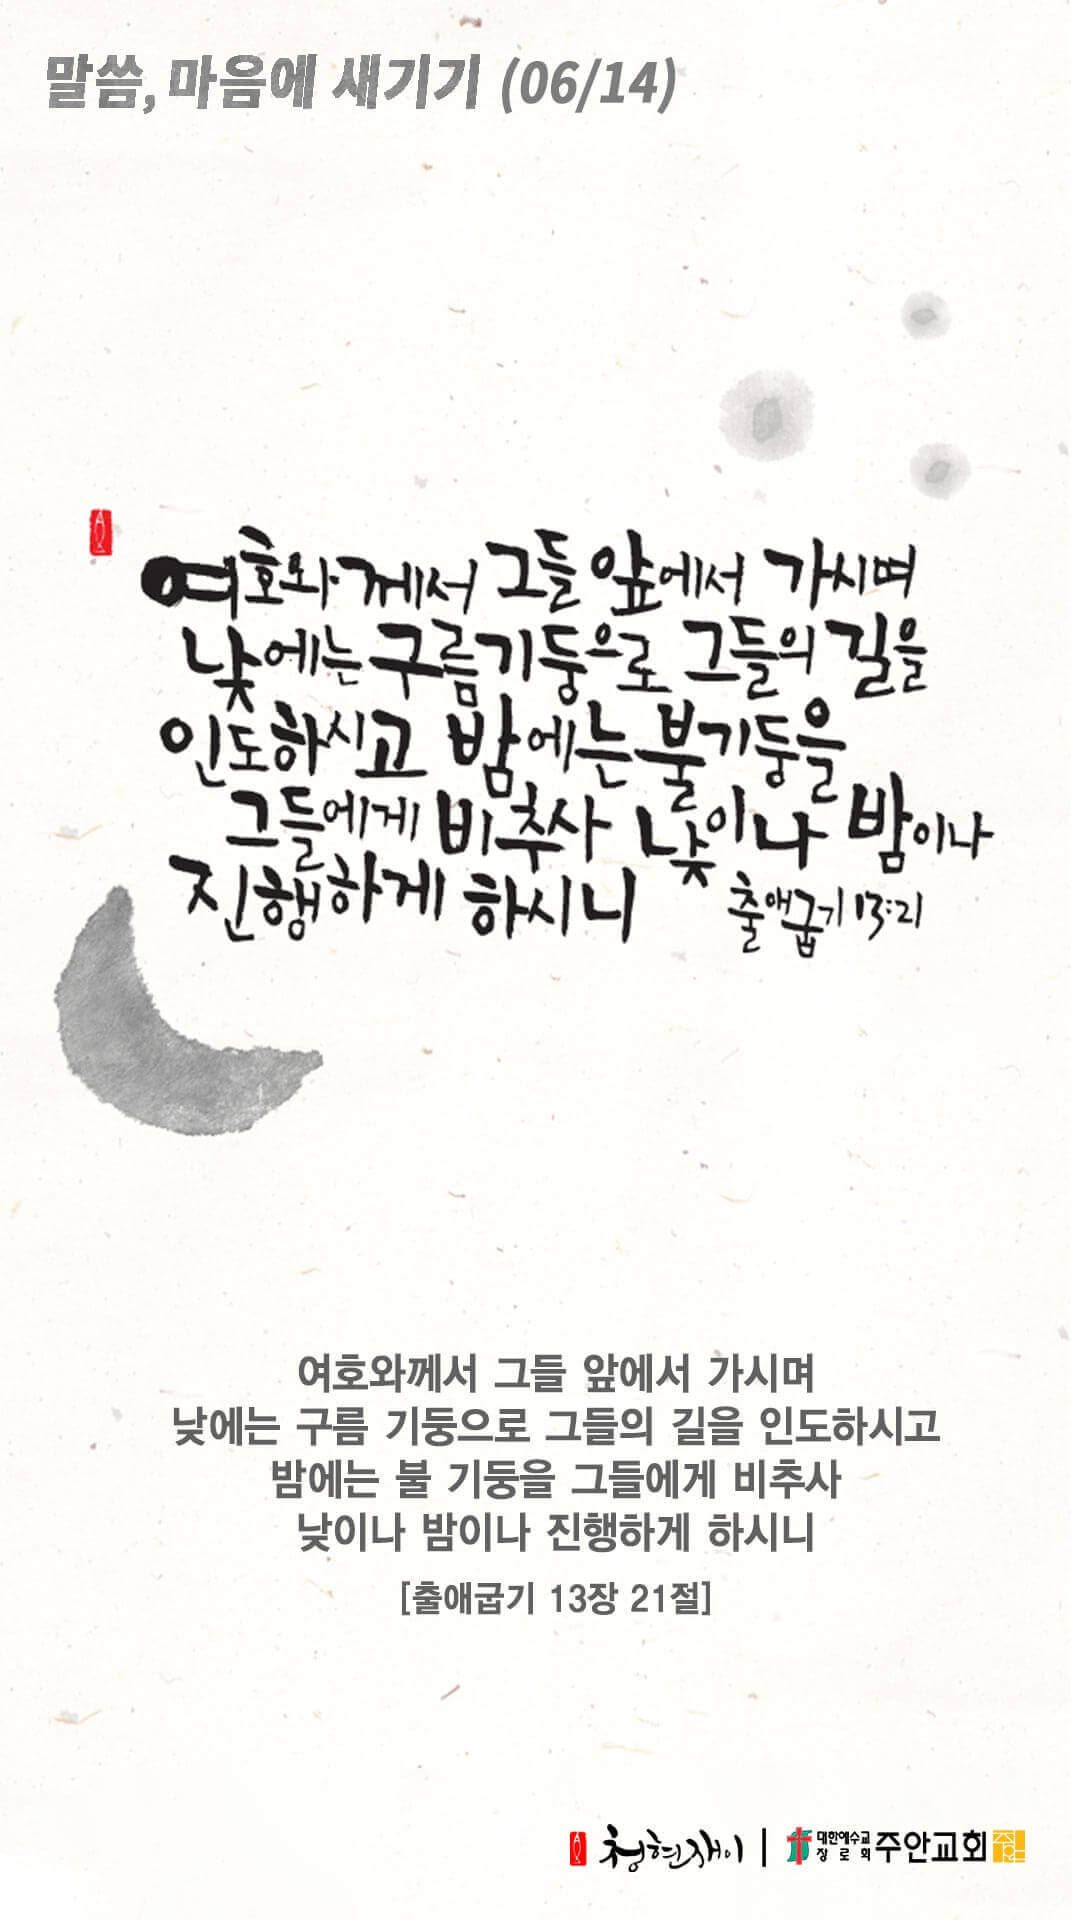 말씀, 마음에 새기기 (06/14)
여호와께서 그들 앞에서 가시며
낮에는 구름기둥으로 그들의 길을
인도하시고 밤에는 불기둥을
그들에게 비추사 낮이나 밤이나
진행하게 하시니
출애굽기 13:21
여호와께서 그들 앞에서 가시며
낮에는 구름 기둥으로 그들의 길을 인도하시고
밤에는 불 기둥을 그들에게 비추사
낮이나 밤이나 진행하게 하시니
[출애굽기 13장 21절]
청현재이 | 대한예수교 장로회 주안교회